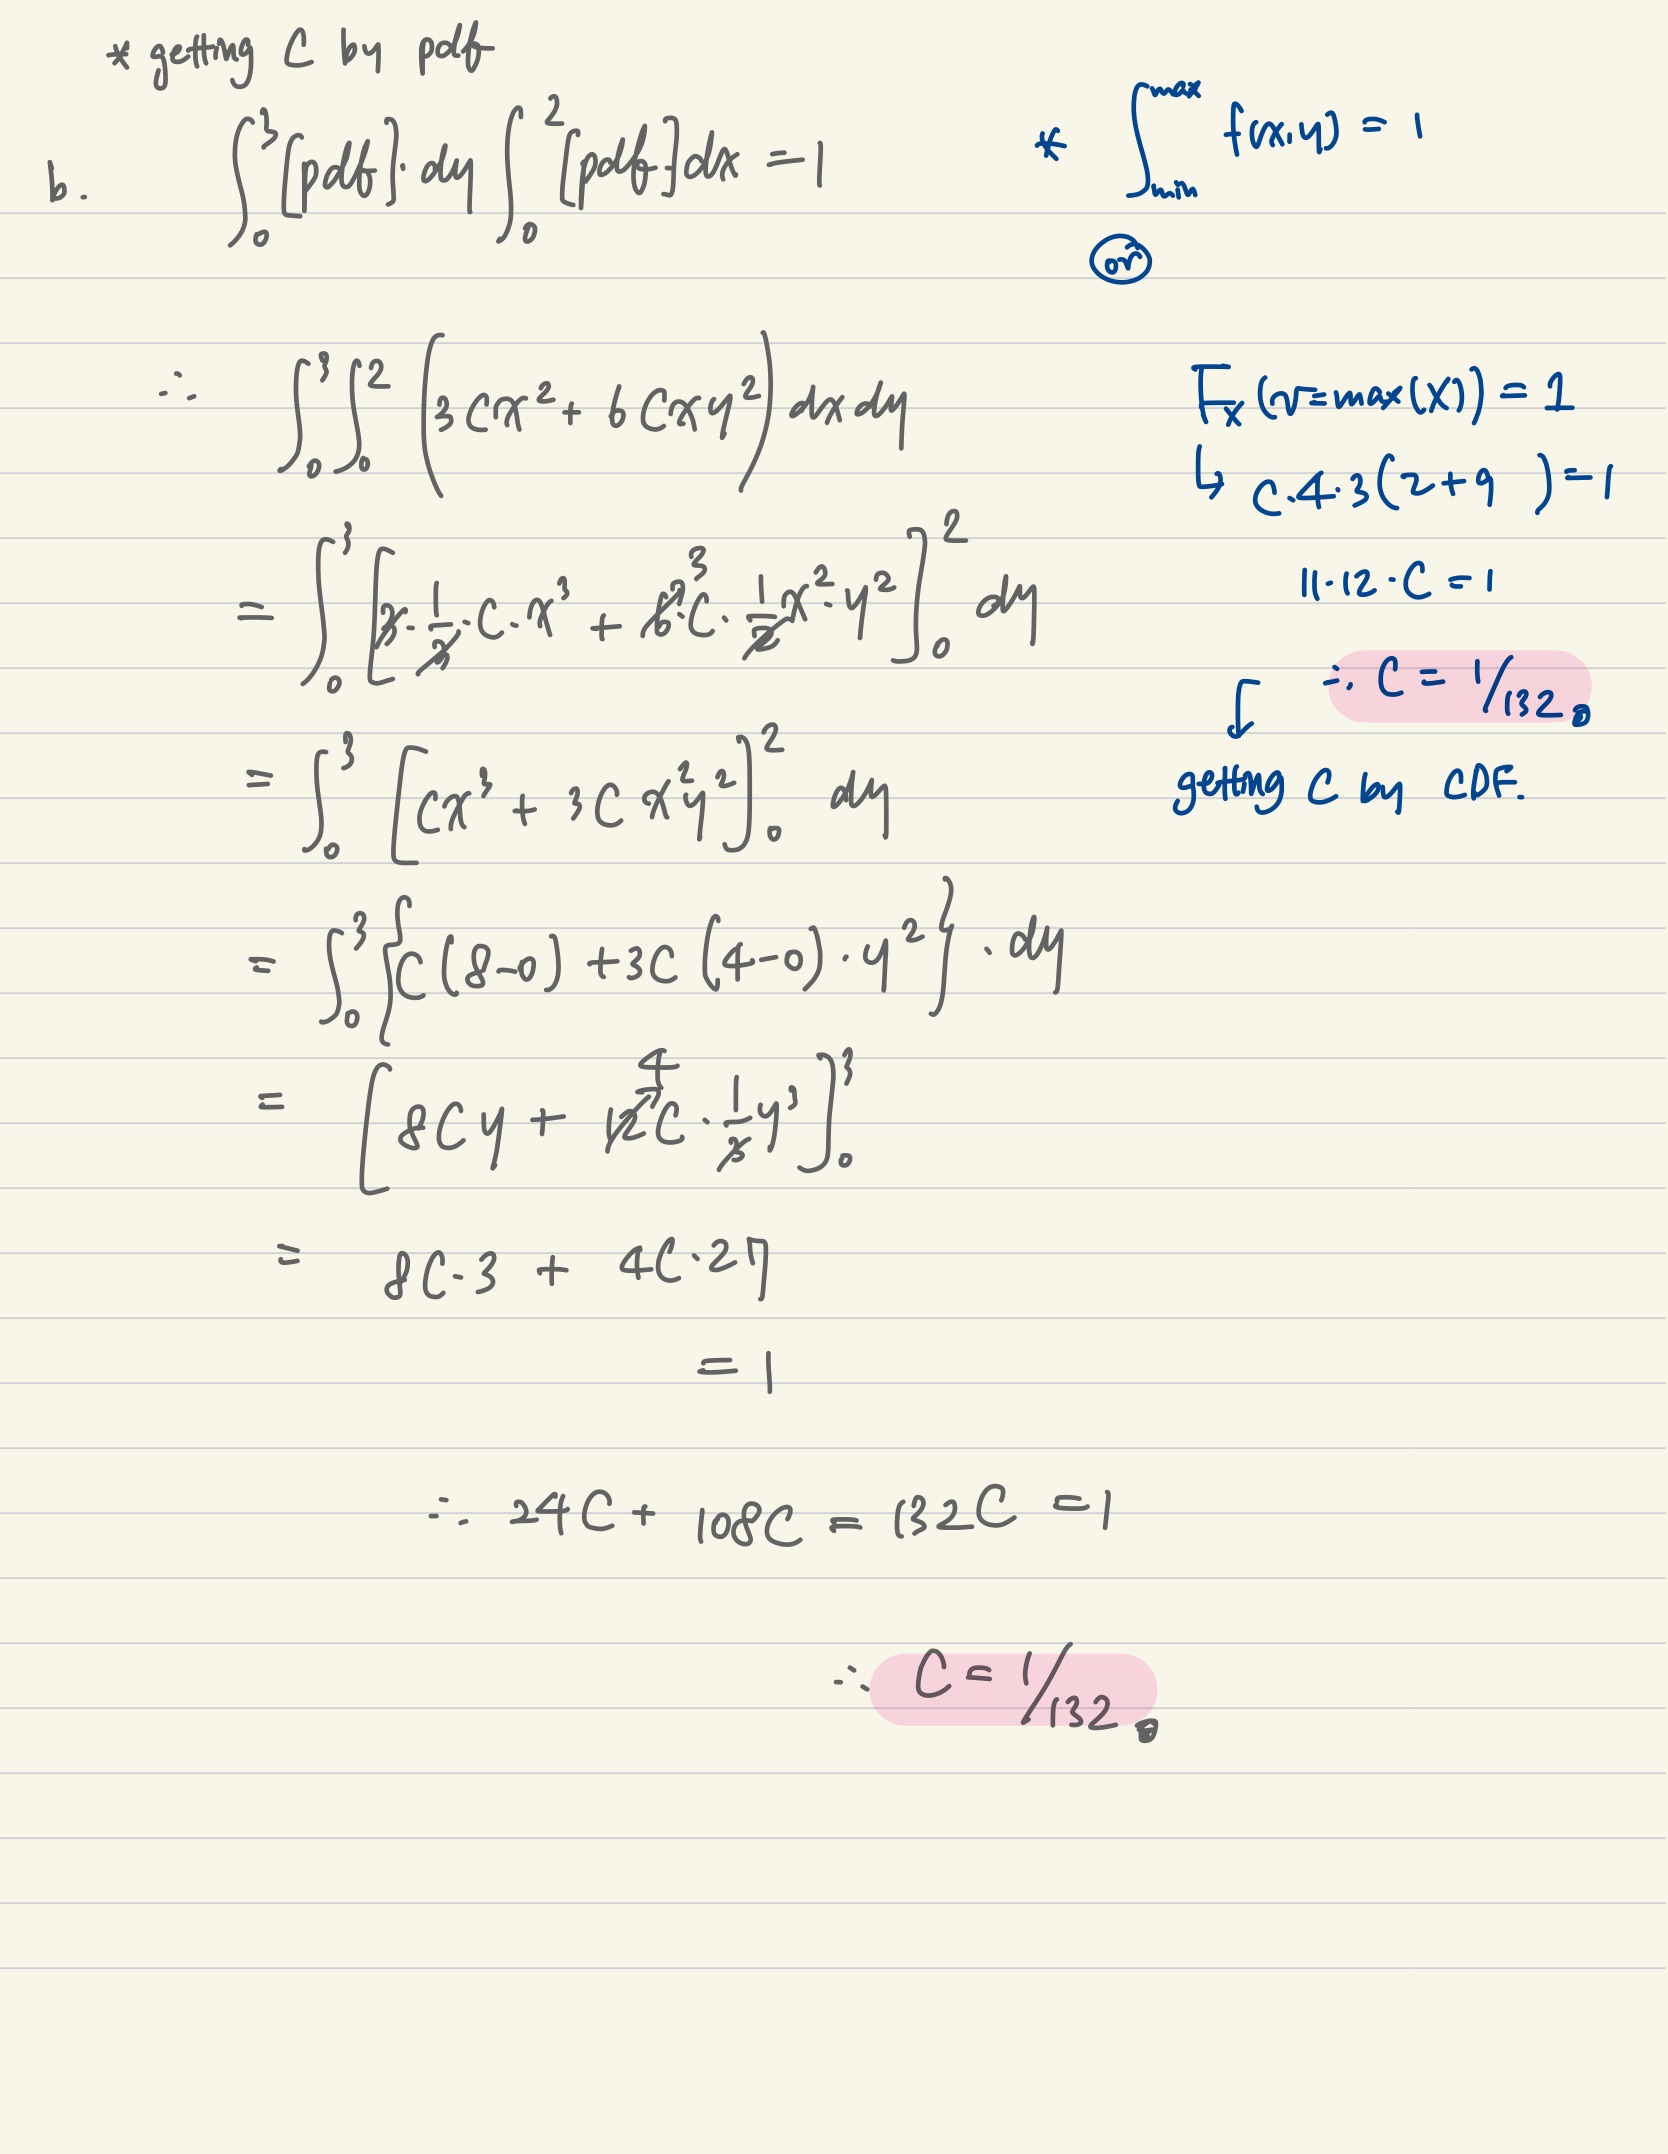 * getting C by pdf
b. ∫₀³ [pdf]·dy ∫₀² [pdf]dx = 1
∴ ∫₀³ ∫₀² (3Cx² + 6Cxy²) dxdy
= ∫₀³ [3·1/3·C·x³ + 6·C·1/2x²·y²]₀² dy
3
= ∫₀³ [Cx³ + 3Cx²y²]₀² dy
= ∫₀³ {C(8-0) + 3C(4-0)·y²}·dy
= [8Cy + 12C·1/3y³]₀³
4
= 8C·3 + 4C·27
= 1
∴ 24C + 108C = 132C = 1
∴ C = 1/132
* ∫ₘᵢₙᵐᵃˣ f(x,y) = 1
or
Fₓ(v=max(X)) = 1
↳ C·4·3(2+9) = 1
11·12·C = 1
∴ C = 1/132
↓
getting C by CDF.